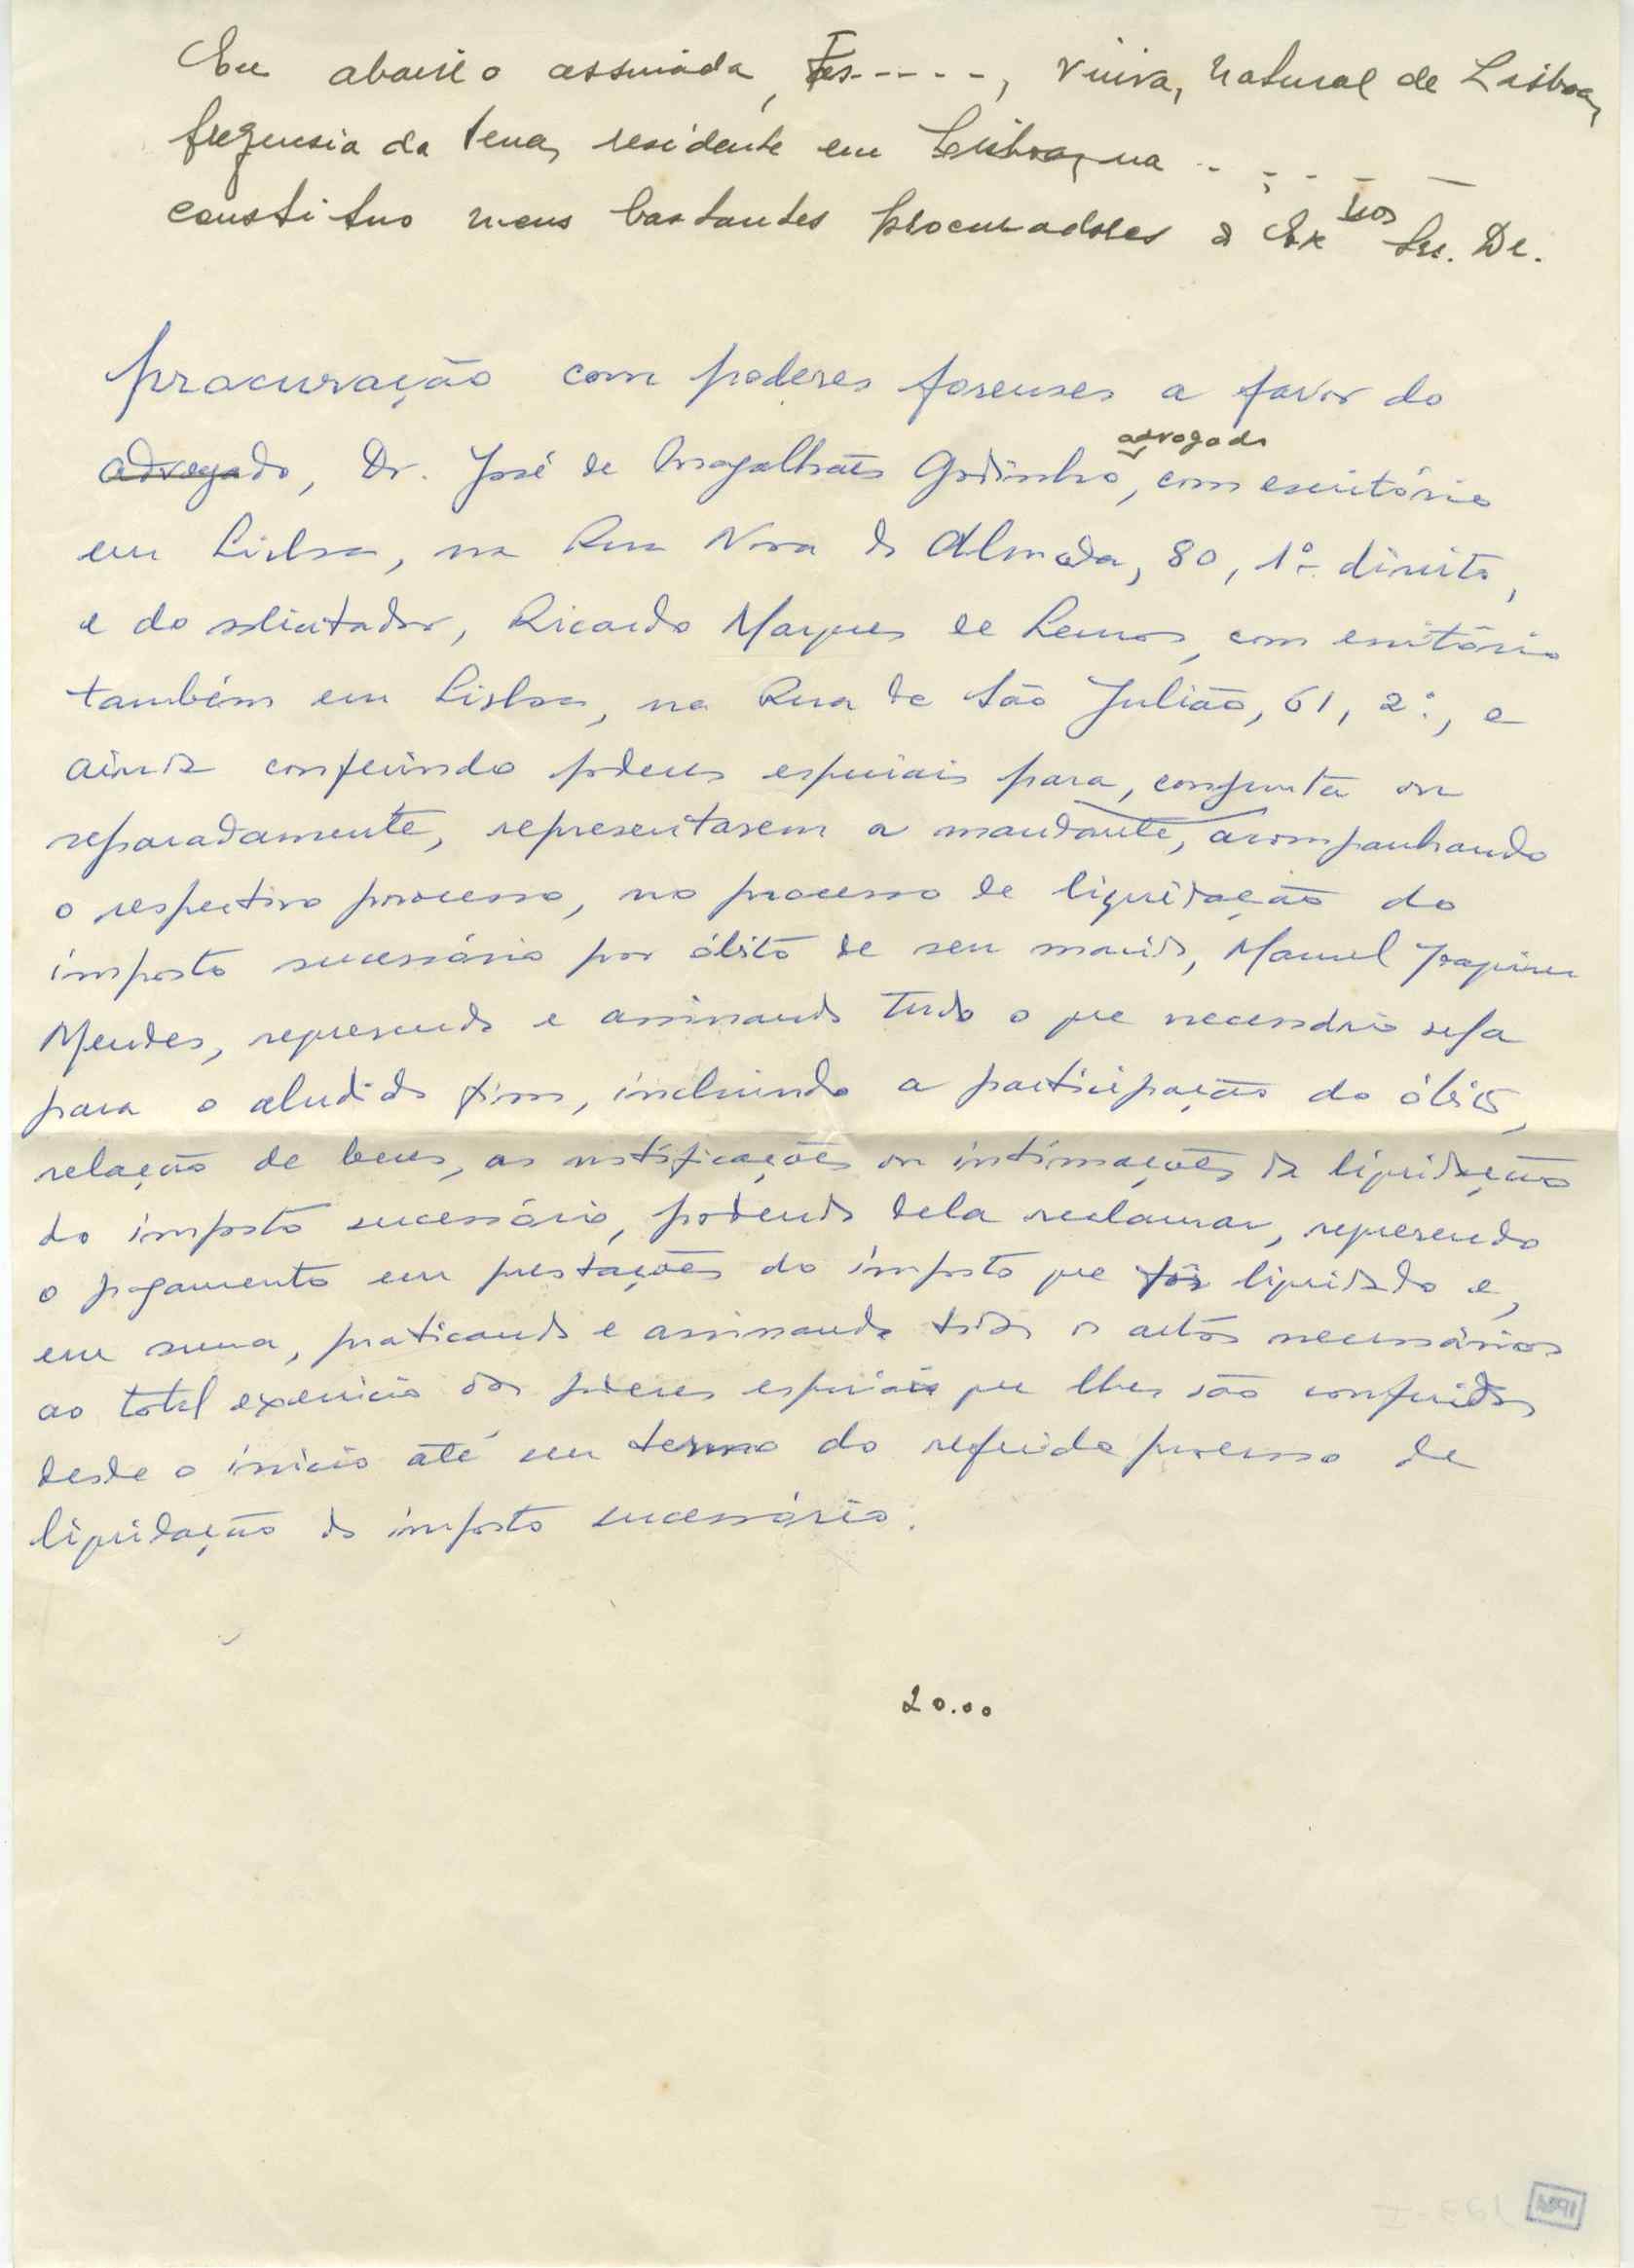 Eu abaixo assinada, F......, viuva, natural de Lisboa,
freguesia da Pena, residente em Lisboa, na . . . . .
constituo meus bastantes procuradores o Ex mos Sr. Dr.
procuração com poderes forenses a favor do
advogado, Dr. José de Magalhães Godinho, advogado, com escritório
em Lisboa, na Rua Nova do Almada, 80, 1º direito,
e do solicitador, Ricardo Marques de Lemos, com escritório
também em Lisboa, na Rua de São Julião, 61, 2º, e
ainda conferindo poderes especiais para, conjunta ou
separadamente, representarem a mandante, acompanhando
o respectivo processo, no processo de liquidação do
imposto sucessório por óbito de seu marido, Manuel Joaquim
Mendes, requerendo e assinando tudo o que necessário seja
para o aludido fim, incluindo a participação do óbito,
relação de bens, as notificações ou intimações da liquidação
do imposto sucessório, podendo dela reclamar, requerendo
o pagamento em prestações do imposto que fôr liquidado e,
em suma, praticando e assinando todos os actos necessários
ao total exercício dos poderes especiais que lhes são conferidos
desde o início até seu termo do referido processo de
liquidação do imposto sucessório.
20.00